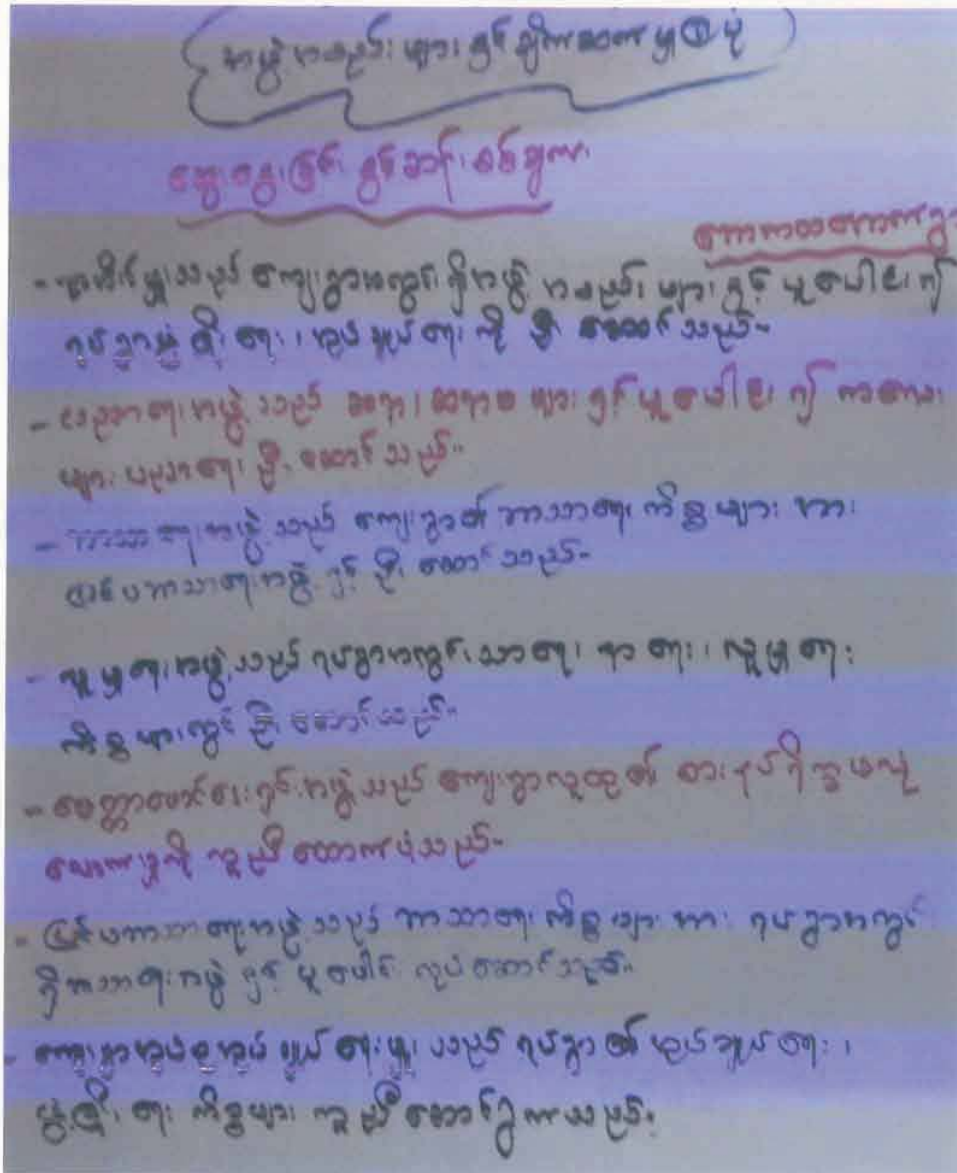 အဖွဲ့အစည်းများနှင့်ချိတ်ဆက်မှုပုံစံ
ဆွေးနွေးခြင်းနှင့်ဆန်းစစ်ချက်
ကောကထကောက
ရာအိမ်မှူးသည် ကျေးရွာအတွင်းရှိအဖွဲ့အစည်းများနှင့် ပူးပေါင်း၍
ရပ်ရွာဖွံ့ဖြိုးရေး၊ အုပ်ချုပ်ရေးကို ဦးဆောင်သည်။
- ပညာရေးအဖွဲ့သည် ဆရာ၊ ဆရာမများနှင့်ပူးပေါင်း၍ ကလေး
များပညာရေး ဦးဆောင်သည်။
- ဘာသာရေးအဖွဲ့သည် ကျေးရွာ၏ ဘာသာရေးကိစ္စများအား
ပြင်ပဘာသာရေးအဖွဲ့နှင့် ဦးဆောင်သည်။
- လူမှုရေးအဖွဲ့သည် ရပ်ရွာအတွင်းသာရေး နာရေး၊ လူမှုရေး
ကိစ္စများတွင် ဦးဆောင်သည်။
- မေတ္တာစောင်ရှောင်အဖွဲ့သည် ကျေးရွာလူထု၏ စားနပ်ရိက္ခာဖူလုံ
လောက်မှုကို ကူညီထောက်ပံ့သည်။
- ပြင်ပဘာသာရေးအဖွဲ့သည် ဘာသာရေးကိစ္စများအား ရပ်ရွာအတွင်း
ရှိဘာသာရေးအဖွဲ့နှင့် ပူးပေါင်း လုပ်ဆောင်သည်။
- ကျေးရွာအုပ်စုအုပ်ချုပ်ရေးမှူးသည် ရပ်ရွာ၏ အုပ်ချုပ်ရေး၊
ဖွံ့ဖြိုးရေးကိစ္စများ ကူညီဆောင်ရွက်သည်။